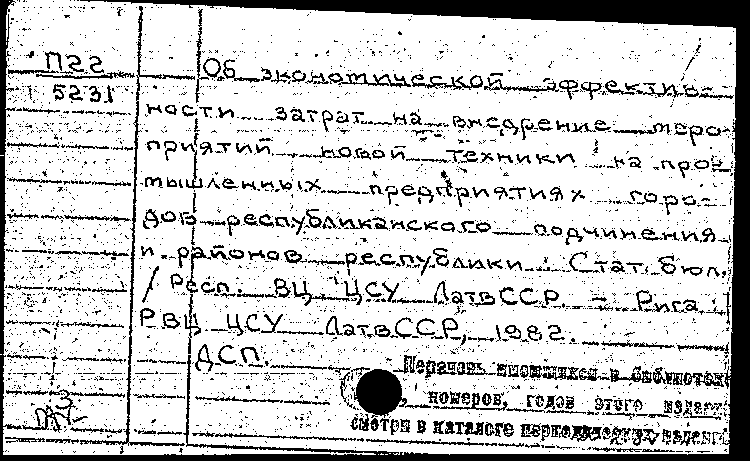 П22
5231
Об экономической эффектив-
ности затрат на внедрение меро-
приятий новой техники на про-
мышленных предприятиях горо-
дов республиканского подчинения
и районов республики: Стат. бюл.
/ Респ. ВЦ ЦСУ ЛатвССР. - Рига
РВЦ ЦСУ ЛатвССР, 1982.
ДСП.
Перечень имеющихся в библиотеке
, номеров, годов этого издания
смотри в каталоге периодических издани